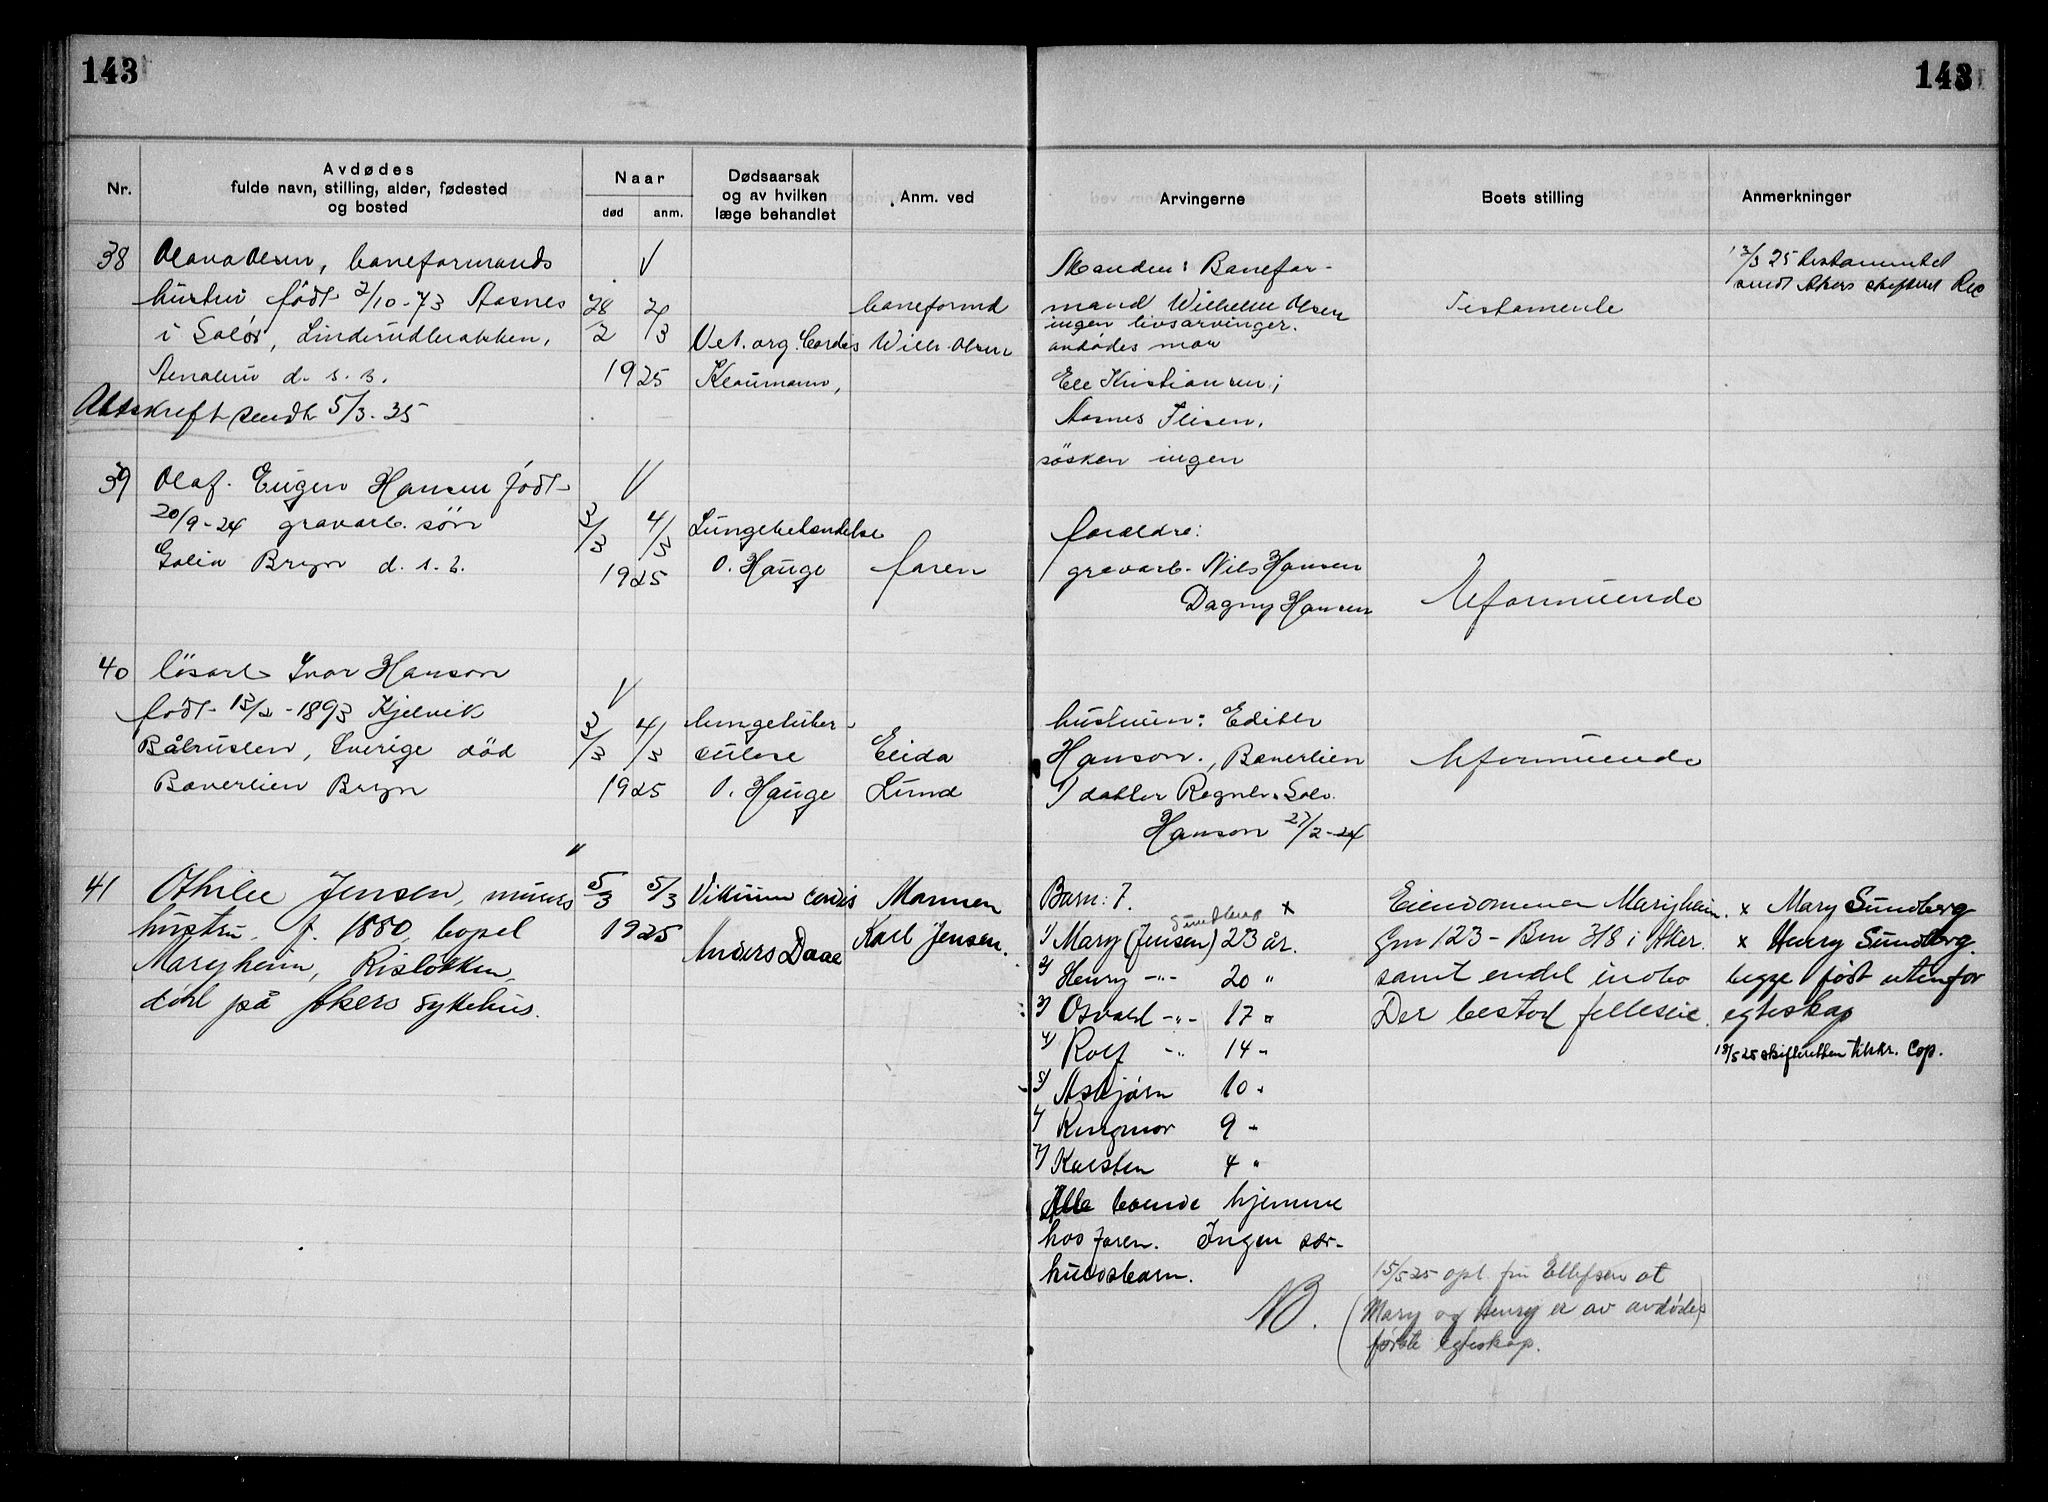 143
143
Nr.
Avdødes
fulde navn, stilling, alder, fødested
og bosted
Naar
død
anm.
Dødsaarsak
og av hvilken
læge behandlet
Anm. ved
Arvingerne
Boets stilling
Anmerkninger
38
Olava Olsen, baneformands
hustru født 2/10-73 Aasnes
i Solør, Linderudbrakken,
d. s. b.
Avskrift sendt 5/3-25
28/2 2/3
1925
Vet. org. Cordis
Klaumann,
baneformd
Wilh. Olsen
Manden: Banefor-
mand Wilhelm Olsen
ingen livsarvinger.
avdødes mor
Kristiansen;
Aasnes Flisen,
søsken ingen
Testamente
13/3 25 testamentet
sendt Akers skifteret
39
Olaf Eugen Hansen født
20/9-24 gravarb. søn
Bryn d. s. b.
3/3 4/3
1925
Lungebetændelse
O. Hauge
faren
foreldre:
gravarb. Nils Hansen
Dagny Hansen
Uformuende
40
løsarb Ivar Hanson
født 13/2-1893 Kjelvik
Båhuslen, Sverige død
Bæverlien Bryn
3/3 4/3
1925
lungetuber-
culose
O. Hauge
Elida
Lund
hustruen: Edith
Hanson., Bæverlien
1 datter
Hanson 27/2-24
Uformuende
41
Othilie Jensen, murers
hustru. f. 1880, bopel
Maryheim, Risløkken
død på Akers sykehus.
5/3 5/3
1925
Vitium cordis
Anders Daae
Mannen
Karl Jensen.
Barn: 7.
Sundberg x
1) Mary (Jensen) 23 år.
2) Henry -"- 20 "
3) Osvald -"- 17 "
4) Rolf -"- 14 "
5) Asbjørn 10 "
Ringmor 9 "
7) Karsten 4 "
Alle boende hjemme
hos faren. Ingen sær-
kuldsbarn.
NB.
Eiendommen Maryheim.
Gnr 123 - Bnr 318 i Aker.
samt endel indbo
Der bestod felleseie.
x Mary Sundberg
x Henry Sundberg.
begge født utenfor
egteskap
18/5 25 skifteretten tilskr. Cop.
15/5 25 opl. fru Ellefsen at
(Mary og Henry er av avdødes)
første egteskap.